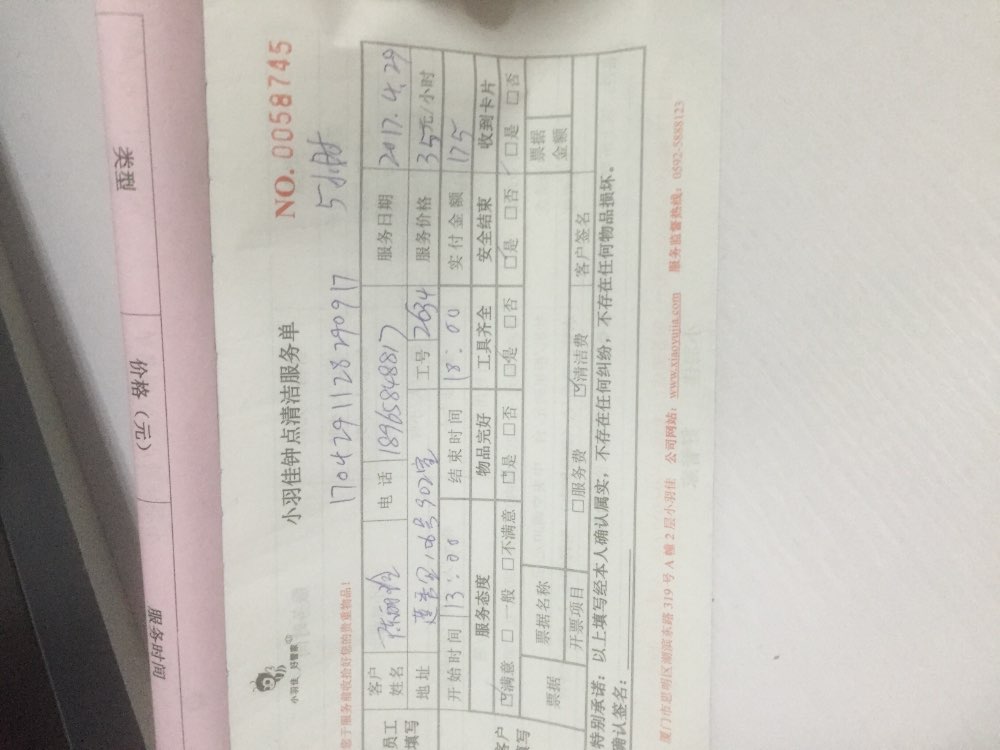 类型
价格（元）
服务时间
小羽佳 好管家
小羽佳钟点清洁服务单
NO. 0058745
170429112829 0917 5小时
您于服务前收拾好您的贵重物品！
员工填写
客户姓名 电话 18965848817 服务日期 2017.4.29
地址 902室 工号 2634 服务价格 35元/小时
开始时间 13:00 结束时间 18:00 实付金额 175
服务态度 物品完好 工具齐全 安全结束 收到卡片
☑满意 □一般 □不满意 ☑是 □否 ☑是 □否 ☑是 □否 □是 □否
票据 票据名称 票据金额
开票项目 □服务费 ☑清洁费 客户签名
特别承诺：以上填写经本人确认属实，不存在任何纠纷，不存在任何物品损坏。
确认签名：
厦门市思明区湖滨东路319号A幢2层小羽佳 公司网站：www.xiaoyujia.com 服务监督热线：0592-5888123